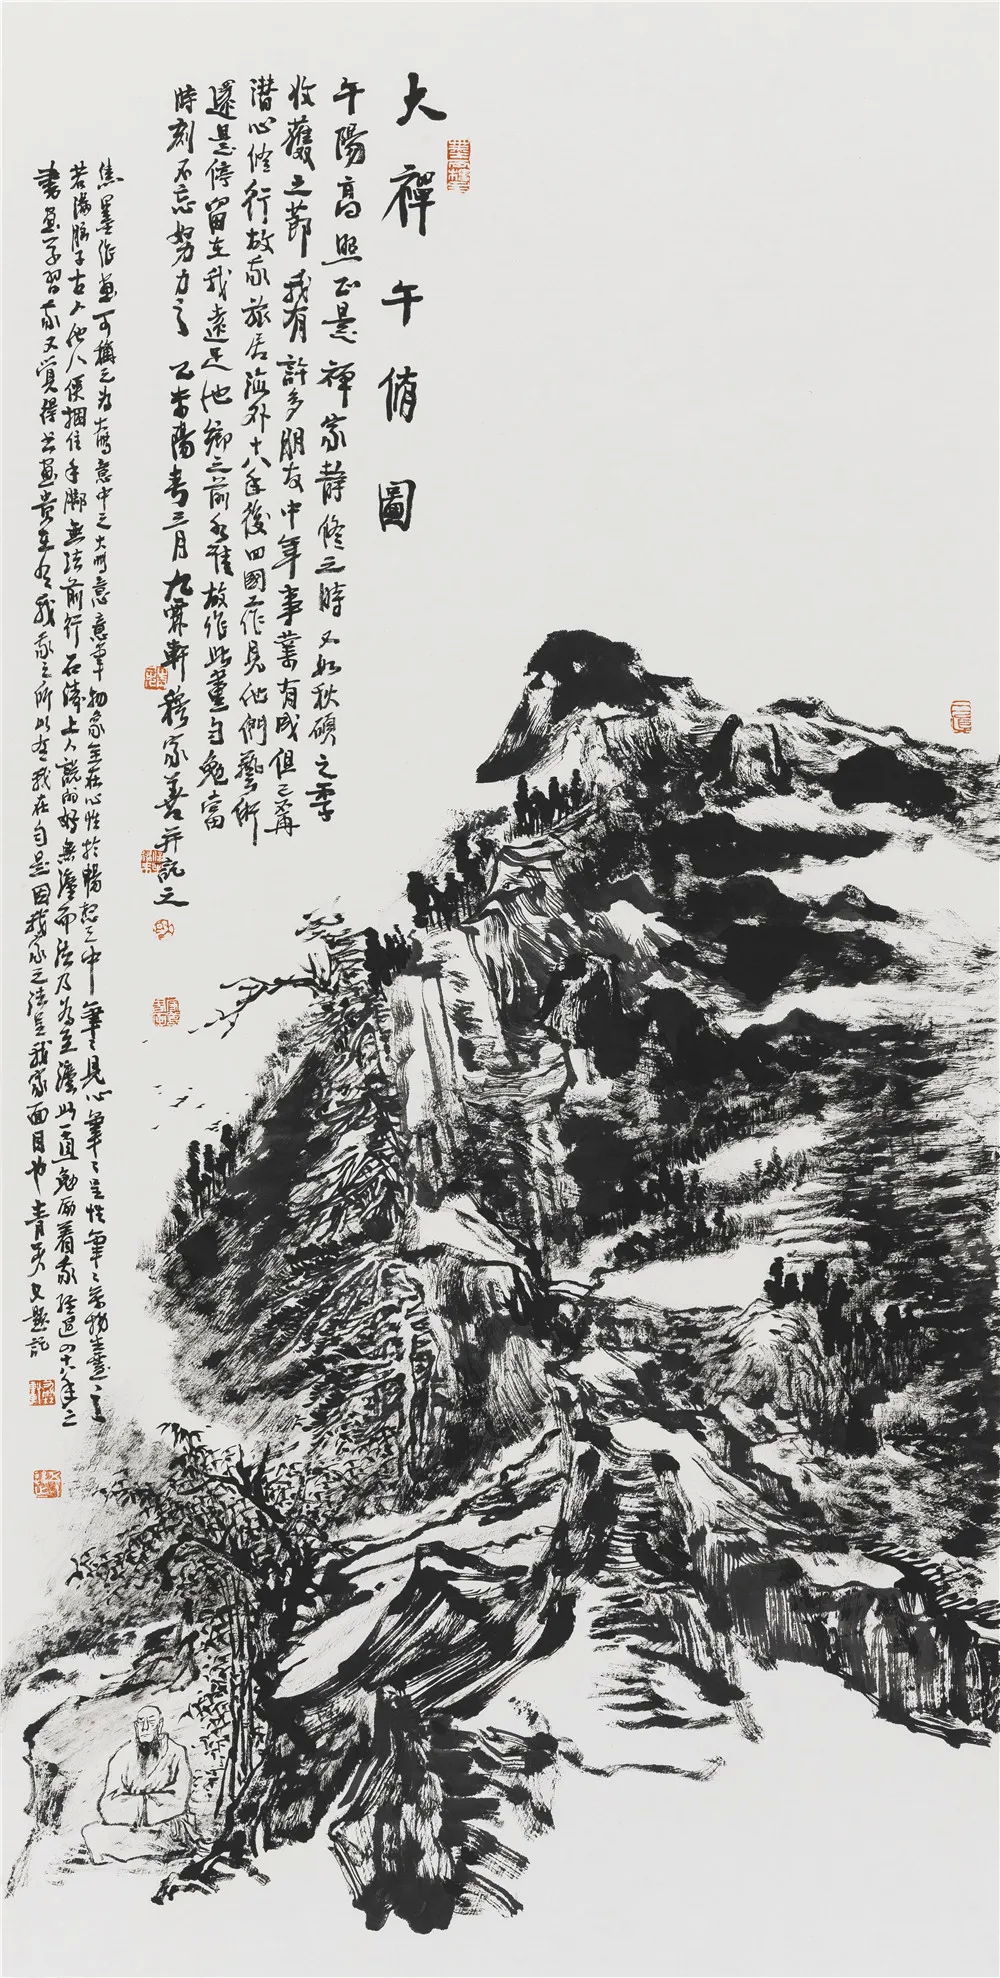 大禪午脩圖
午陽高照正是禪家静修之時又如秋碩之季
收獲之節我有許多朋友中年事業有成但已再
潜心修行故我旅居海外十八年後回國工作見他們藝術
還是停留在我遠足他鄉之前水準故作此畫自勉當
時刻不忘努力之 乙未陽春三月九霖軒穆家善并記之
焦墨作畫可稱之為大寫意中之大寫意意筆物象全在心性於暢想之中筆筆見心筆筆呈性筆筆萬物生靈之
若滿腦子古人他人便捆住手脚無法前行石濤上人説的好無法而法乃為至法此一直勉励着我經過四十八年之
書画学習我又覺得書畫贵在有我我之所以有我在自是因我家之法呈我家面目也 青 又題記